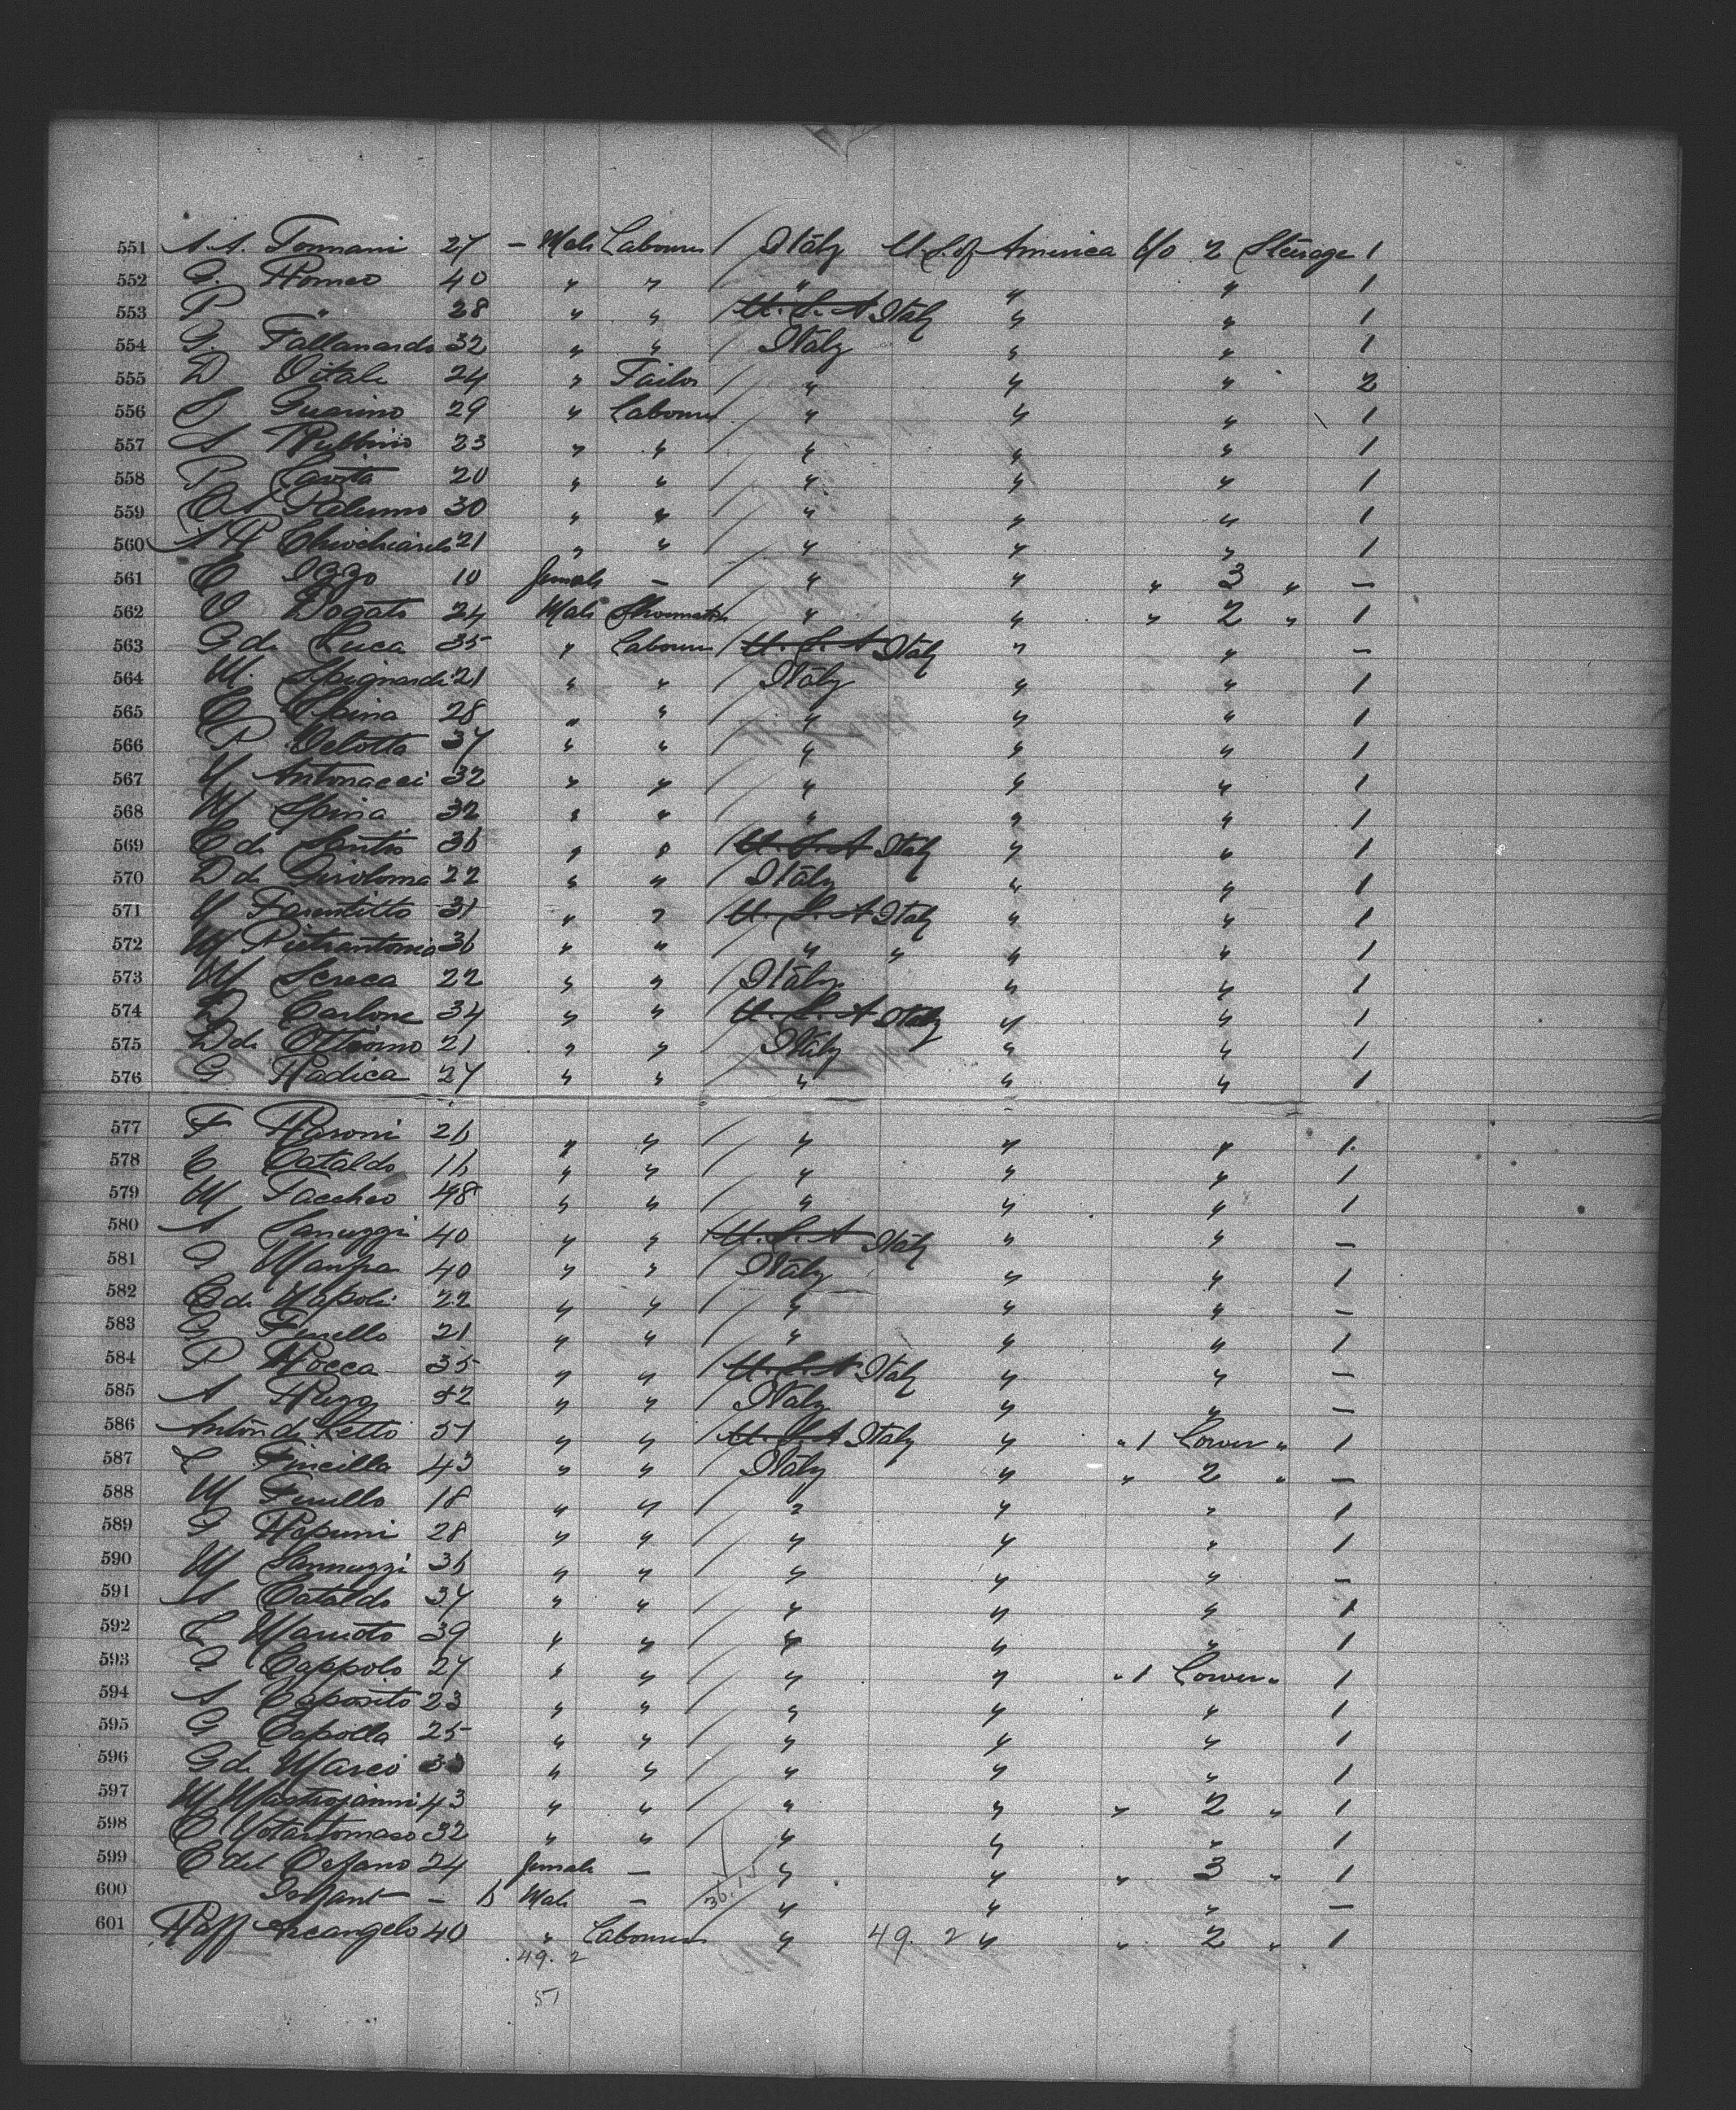 551 A. A. Tomnani 27 — Male Labourer / Italy U.S. of America b/o 2 Steerage 1
552 G. Romeo 40 " " " " " 1
553 P " 28 " " / U.S.A Italy " " 1
554 G. Fallanardo 32 " " / Italy " " 1
555 D Vitale 24 " Tailor / " " " 2
556 S Guarino 29 " Labourer " " " 1
557 A Rubbino 23 " " / " " " 1
558 P Carita 20 " " / " " " 1
559 A Palermo 30 " " / " " " 1
560 A P 21 " " / " " " 1
561 C Izzo 10 Female — / " " " 3 " —
562 V Dogato 24 Male " " " 2 " 1
563 G de Luca 35 " Labourer / U.S.A Italy " " —
564 M. Spignardi 21 " " / Italy " " 1
565 C Spina 28 " " / " " " 1
566 P Velotta 37 " " / " " " 1
567 M Antonacci 32 " " / " " " 1
568 M Spina 32 " " / " " " 1
569 C de Santis 36 " " / U.S.A Italy " " 1
570 D de Giroloma 22 " " / Italy " " 1
571 M Farentitto 31 " " / U.S.A Italy " " 1
572 M Pietrantonio 36 " " / " " " " 1
573 M Screca 22 " " / Italy " " 1
574 D Carlone 34 " " / U.S.A Italy " " 1
575 D de 21 " " / Italy " " 1
576 G Radica 27 " " / " " " 1
577 F Maroni 26 " " / " " " 1
578 C Cataldo 16 " " / " " " 1
579 M Faccheo 48 " " / " " " 1
580 A Ianuzzi 40 " " / U.S.A Italy " " —
581 G Manpa 40 " " / Italy " " 1
582 C de Napoli 22 " " / " " " —
583 G Finello 21 " " / " " " 1
584 P Rocca 35 " " / U.S.A Italy " " —
585 A " " / Italy " " —
586 Anton di Letto 51 " " / U.S.A Italy " " 1 Lower " 1
587 L Fincilla 43 " " / Italy " " 2 " —
588 M Finello 18 " " / " " " 1
589 G Rapuni 28 " " / " " " 1
590 M Iannuzzi 36 " " / " " " —
591 A Cataldo 37 " " / " " " 1
592 L Marioto 39 " " / " " " 1
593 G Cappolo 27 " " / " " " 1 Lower " 1
594 A Esposito 23 " " / " " " 1
595 G Capolla 25 " " / " " " 1
596 G de Marco " " / " " " 1
597 M Mastrojanni 43 " " / " " " 2 " 1
598 C Votartomaso 32 " " / " " " 1
599 C del Orfano 24 Female — " " " 3 " 1
600 Infant — 6 Male — 36.15 / " " " —
601 Raff Arcangelo 40 " Labourer " 49. 2 " " 2 " 1
49. 2
51